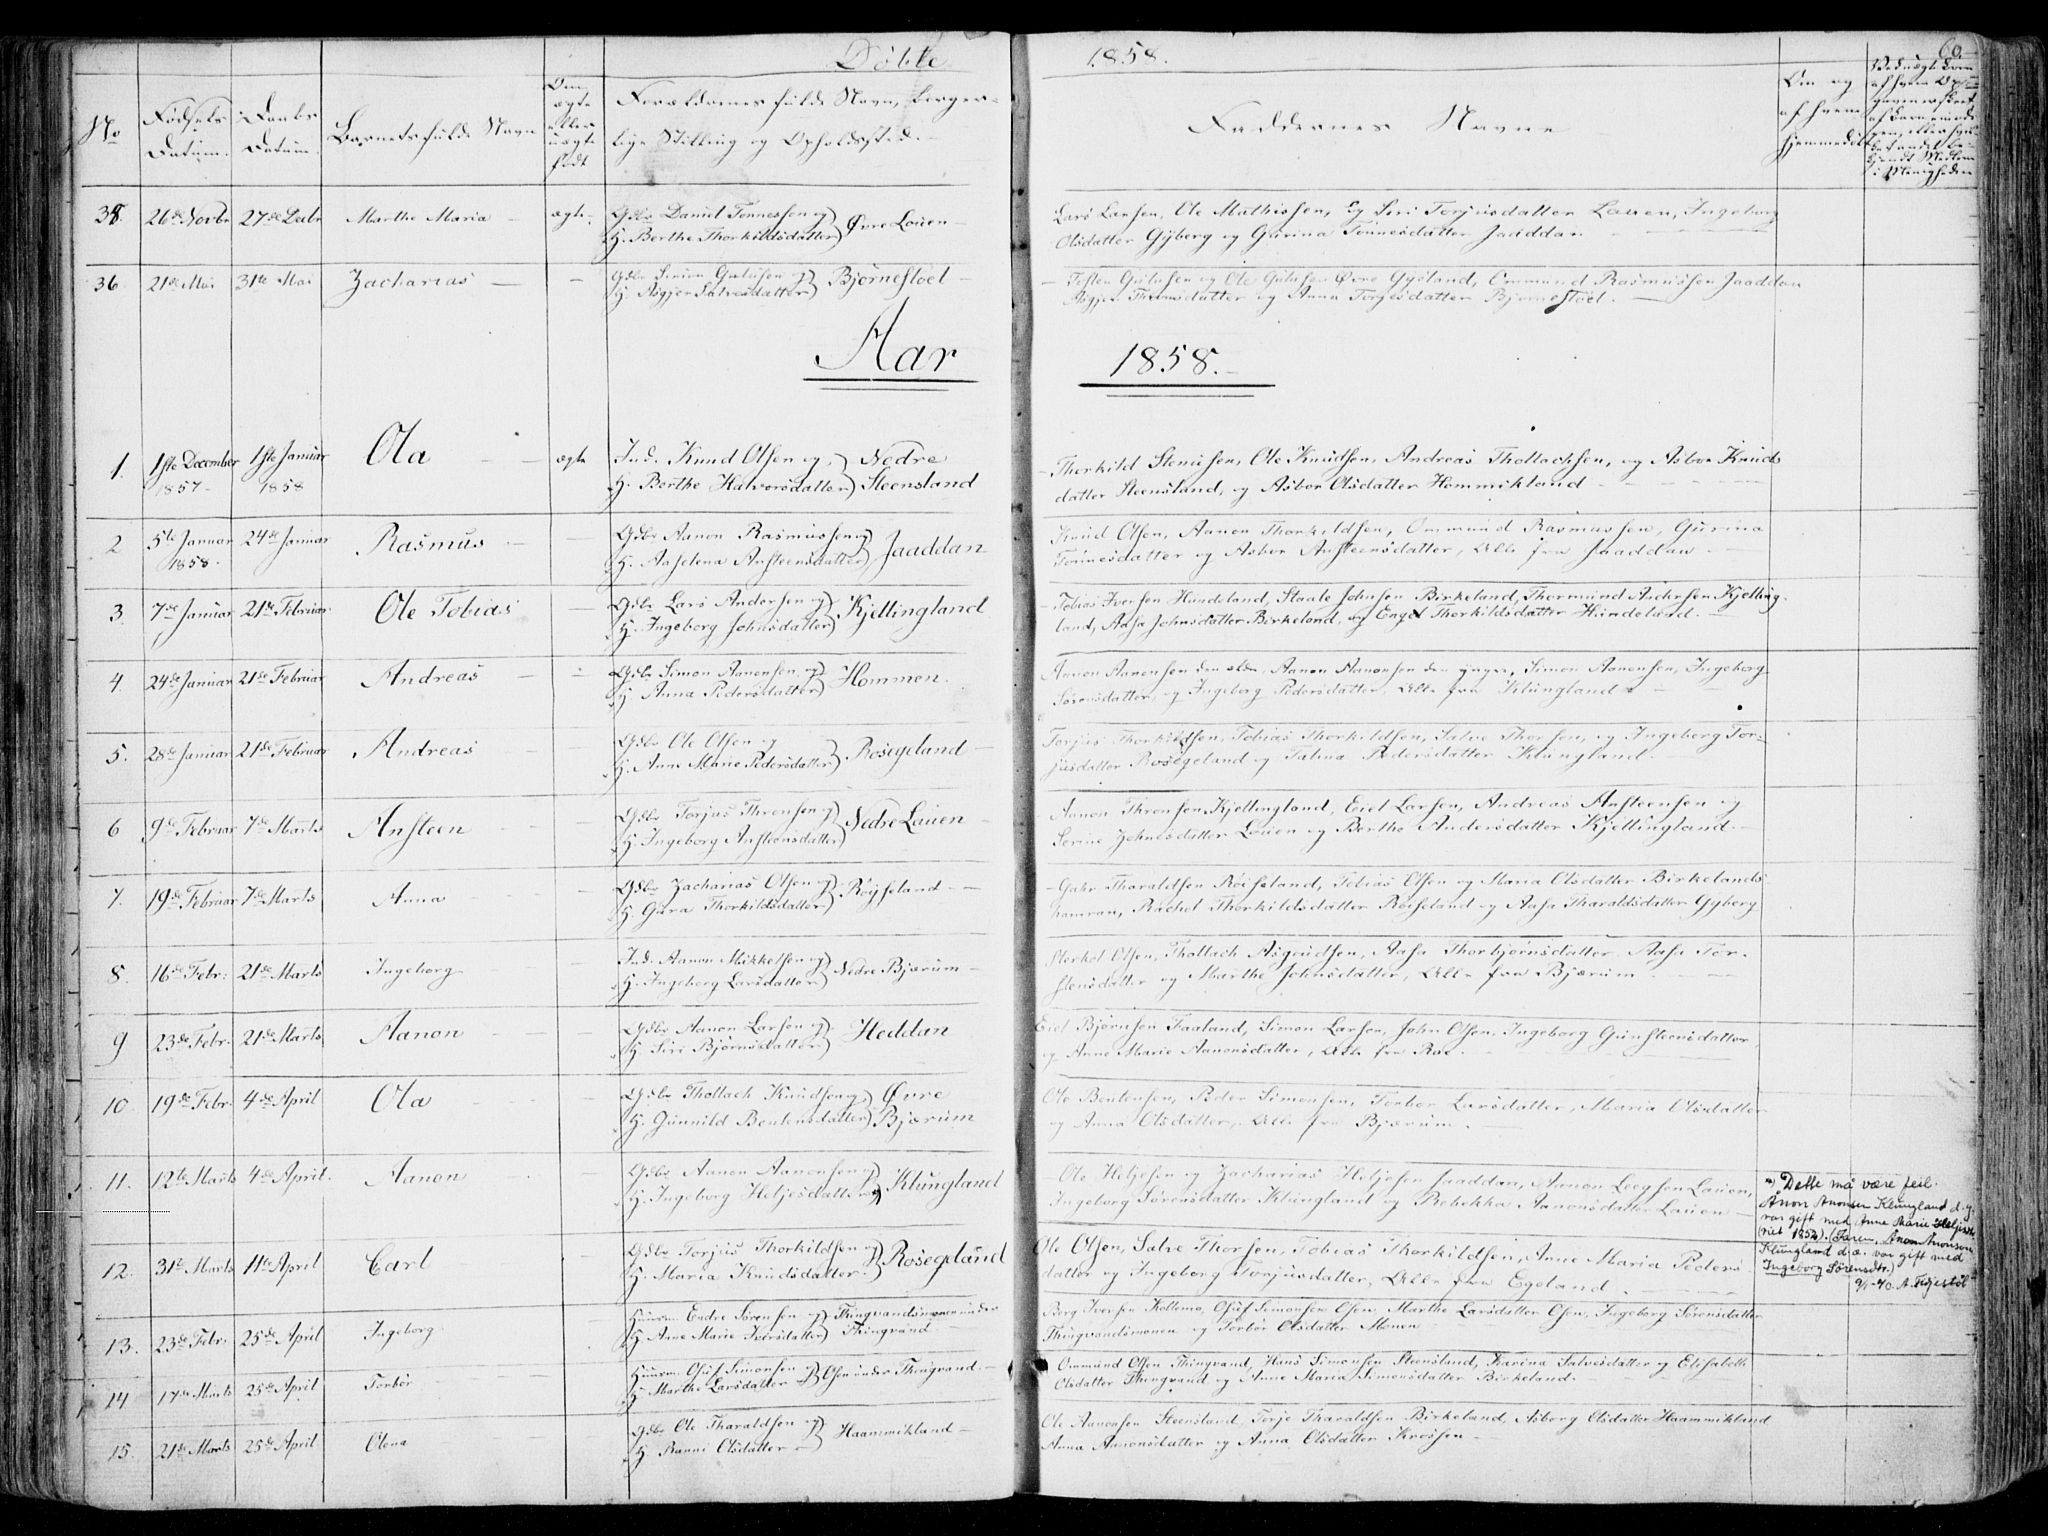 Døbte 1858. 60.
No
Fødsels Datum.
Daabs Datum.
Barnets fulde Navn
Om ægte eller uægte født
Forældrenes fulde Navn, borger-
lige Stilling og Opholdssted.
Faddernes Navne
Om og af hvem hjemmedøbt
35. 26de Novbr 27de Decbr Marthe Maria ægte Gdbr Daniel Tønnessen og H. Berthe Thorkildsdatter Øvre Louen
Lars Larsen, Ole Mathissen, og Siri Torjusdatter Louen, Ingeborg
Olsdatter Gyberg og Gurina Tønnesdatter Jaaddan
36 21de Mai 31te Mai Zacharias Gdbr Simon Gutusen og H. Asgjer Salvesdatter Bjørnestoel
Testen Gutusen og Ole Gutusen Øvre Gysland, Ommund Rasmussen Jaaddan
Asgjer Thomsdatter og Anna Torjesdatter Bjørnestoel.
Aar 1858.
1. 1ste December 1857 1ste Januar 1858 Ola ægte Ind. Knud Olsen og H. Berthe Halvorsdatter Nedre Steensland
Thorkild Stenusen, Ole Knudsen, Andreas Thollachsen, og Asbor Knuds
datter Steensland, og Asbor Olsdatter Hommikland
2 5te Januar 1858. 24de Januar Rasmus Gdbr Aanon Rasmussen og H. Aaselena Ansteensdatter Jaaddan
Knud Olsen, Aanon Thorkildsen, Ommund Rasmussen, Gurina
Tønnesdatter og Asbor Ansteensdatter, Alle fra Jaaddan
3. 7de Januar 21de Februar Ole Tobias Gdbr Lars Andersen og H. Ingeborg Johnsdatter Kjellingland
Tobias Iversen Hindeland, Staale Johnsen Birkeland, Thormund Andersen Kjelling-
land, Aasa Johnsdatter Birkeland, og Engel Thorkildsdatter Hindeland.
4. 24de Januar 21de Februar Andreas Gdbr Simon Aanensen og H. Anna Pedersdatter Hommen.
Aanon Aanonsen den eldre, Aanon Aanonsen den yngre, Simon Aanonsen, Ingeborg
Sørensdatter, og Ingeborg Pedersdatter, Alle fra Klungland
5. 28de Januar 21de Februar Andreas Gdbr Ole Olsen og H. Anne Marie Pedersdatter Rosegeland
Torjus Thorkildsen, Tobias Thorkildsen, Salve Thorsen, og Ingeborg Tor-
jusdatter Rosegeland og Talina Pedersdatter Klungland.
6 9de Februar 7de Marts Ansteen Gdbr Torjus Thronsen og H. Ingeborg Ansteensdatter Nedre Louen
Aanon Thronsen Kjellingland, Eiel Larsen, Andreas Ansteensen og
Serine Johnesdatter Louen og Berthe Andersdatter Kjellingland.
7. 19de Februar 7de Marts Anna Gdbr Zacharias Olsen og H. Gura Thorkildsdatter Røyseland
Gahr Tharaldsen Røiseland, Tobias Olsen og Maria Olsdatter Birkelands-
hamran, Rachel Thorkildsdatter Røiseland og Aasa Tharaldsdatter Gyberg
8. 16de Febr: 21de Marts Ingeborg Ind. Aanon Mikkelsen og H. Ingeborg Larsdatter Nedre Bjærum
Størkol Olsen, Thollach Asgoudsen, Aasa Thorbjørnsdatter Aasa Tor-
stensdatter og Marthe Johnsdatter, Alle fra Bjærum
9 23de Febr. 21de Marts Aanon Gdbr Aanon Larsen og H. Siri Bjørnsdatter Heddan
Eiel Bjørnsen Faaland, Simon Larsen, John Olsen, Ingeborg Gunsteensdatter,
og Anne Marie Aanonsdatter, Alle fra Roe.
10. 19de Febr. 4de April Ola Gdbr Thollach Knudsen og H. Gunnild Bentensdatter Øvre Bjærum
Ole Bentensen, Peder Simonsen, Torbor Larsdatter, Maria Olsdatter
og Anna Olsdatter, Alle fra Bjærum.
11. 12te Marts 4de April. Aanon Gdbr Aanon Aanonsen og H. Ingeborg Heljesdatter Klungland
Ole Heljesen og Zacharias Heljesen Jaaddan, Aanon Leegsen Louen,
Ingeborg Sørensdatter Klungland og Rebekka Aanonsdatter Louen
Dette må være feil.
Ånon Ånonsen Klungland d.y.
var gift med Anne Marie Heljesdtr
(Faren, Ånon Ånonsen
Klungland d.e. var gift med
Ingeborg Sørensdtr.)
12. 31te Marts 11te April Carl Gdbr Torjus Thorkildsen og H. Maria Knudsdatter Rosegeland
Ole Olsen, Salve Thorsen, Tobias Thorkildsen, Anne Maria Peders-
datter og Ingeborg Torjusdatter, Alle fra Egeland
13. 23de Febr. 25de April Ingeborg Huusm. Endre Sørensen og H. Anne Marie Iversdatter Thingvandsmonen under Thingvand
Berg Iversen Kollemo, Osuf Simonsen Osen, Marthe Larsdatter Osen, Ingeborg Sørensdatter
Thingvandsmonen og Torbør Olsdatter Monen
14 17de Marts 25de April Torbør Huusm. Osuf Simonsen og H. Marthe Larsdatter Osen under Thingvand
Ommund Olsen Thingvand, Hans Simonsen Steensland, Karina Salvesdatter og Elisabeth
Olsdatter Thingvand og Anne Maria Simonsdatter Birkeland.
15. 21de Marts 25de April Olena Gdbr Ole Tharaldsen og H. Ranni Olsdatter Haammikland
Ole Aanonsen Steensland, Torje Tharaldsen Birkeland, Asborg Olsdatter Haammikland
Anna Aanonsdatter og Anna Olsdatter Kroshen